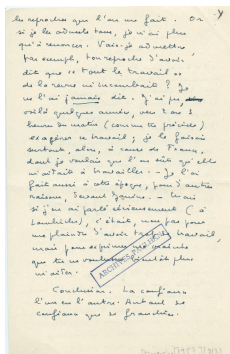 les reproches que l'on me fait. Or
si je les admets tous, je n'ai plus
qu'à renoncer. Vais-je admettre
par exemple, ton reproche d'avoir
dit que "tout le travail"
de la revue m'incombait ? Je
ne l'ai jamais dit. J'ai pu
voilà quelques années, vers tous
heures du matin (comme tu précises)
exagérer ce travail ; je le faisais
surtout, alors, à cause de
dont je voulais que l'on sût qu'elle
m'aidait à travailler. - Je l'ai
fait aussi à cette époque, pour d'autres
raisons, devant
si j'en ai parlé sérieusement (à
), c'était, non pas pour
me plaindre d'avoir trop de travail,
mais pour exprimer ma crainte
que tu ne voulusses bientôt plus
m'aider.
ARCHIVES
Conclusion. La confiance
l'un en l'autre. Autant de
confiance que de franchise.